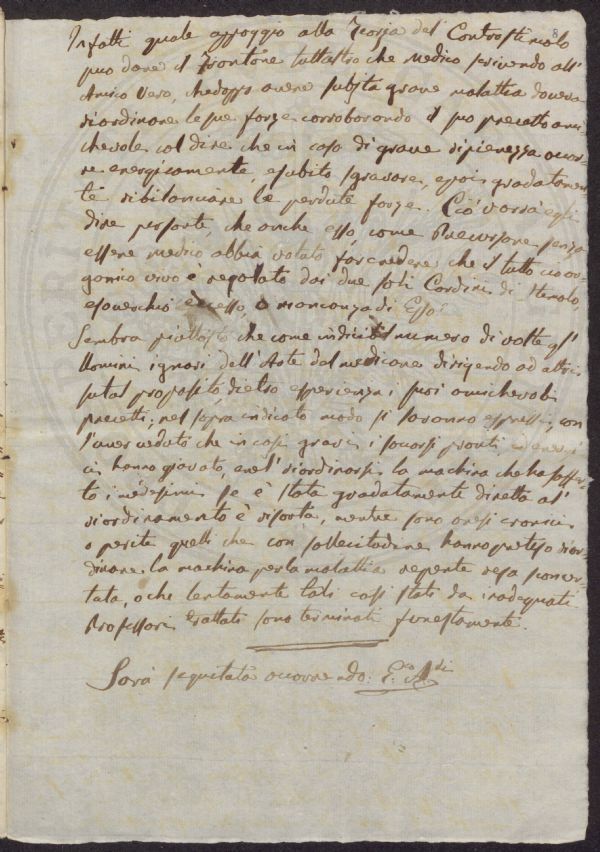 8
Infatti quale appoggio alla Teoria del Controstimolo
può dare il Frontone tuttaltro che Medico scrivendo all'
Amico Vero, che doppo avere subita grave malattia doveva
riordinare le sue forze corroborando il suo precetto ami
chevole col dire che in caso di grave ripienezza occor
re energicamente, e subito sgravare, e poi gradatamen
te ribilanciare le perdute forze. Ciò vorrà egli
dire per forte, che anche esso, come Precursore senza
essere medico abbia votato far credere che il tutto in or
ganico vivo è regolato dai due soli Cardini di stimolo,
e soverchio eccesso, o mancanza di Esso.
Sembra piuttosto che come indicibil numero di volte gl'
Uomini ignari dell'Arte del medicare dirigendo ad altri
su tal proposito dietro esperienza i suoi amichevoli
precetti; nel sopra indicato modo si saranno espressi, con
l'aver veduto che in casi gravi i soccorsi pronti, ed
ci hanno giovato, e nel riordinarsi la machina che ha soffer
to i medesimi se è stata gradatamente diretta al
riordinamento è risorta, mentre sono o resi cronici
o perite quelli che con sollecitudine hanno preteso rior
dinare la machina per la malattia repente resa sconcer
tata, o che lentamente tali casi stati da inadequati
Professori trattati sono terminati funestamente.
Sarà seguitata occorrendo.